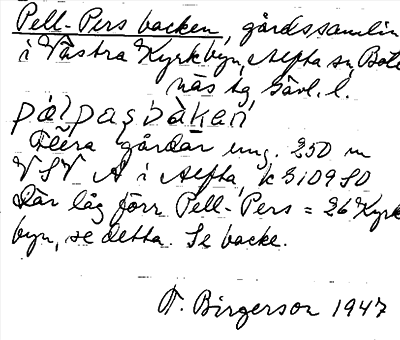 Pell-Pers backen, gårdssamlin
i Västra Kyrkbyn, Alfta sn, Boll
näs tg Gävl. l.
pälpasbàkan
Flera gårdar ung. 250 m
VSV A i Alfta, k 310980
Där låg förr Pell-Pers = 26 Kyrk
byn, se detta. Se backe.
T. Birgerson 1947